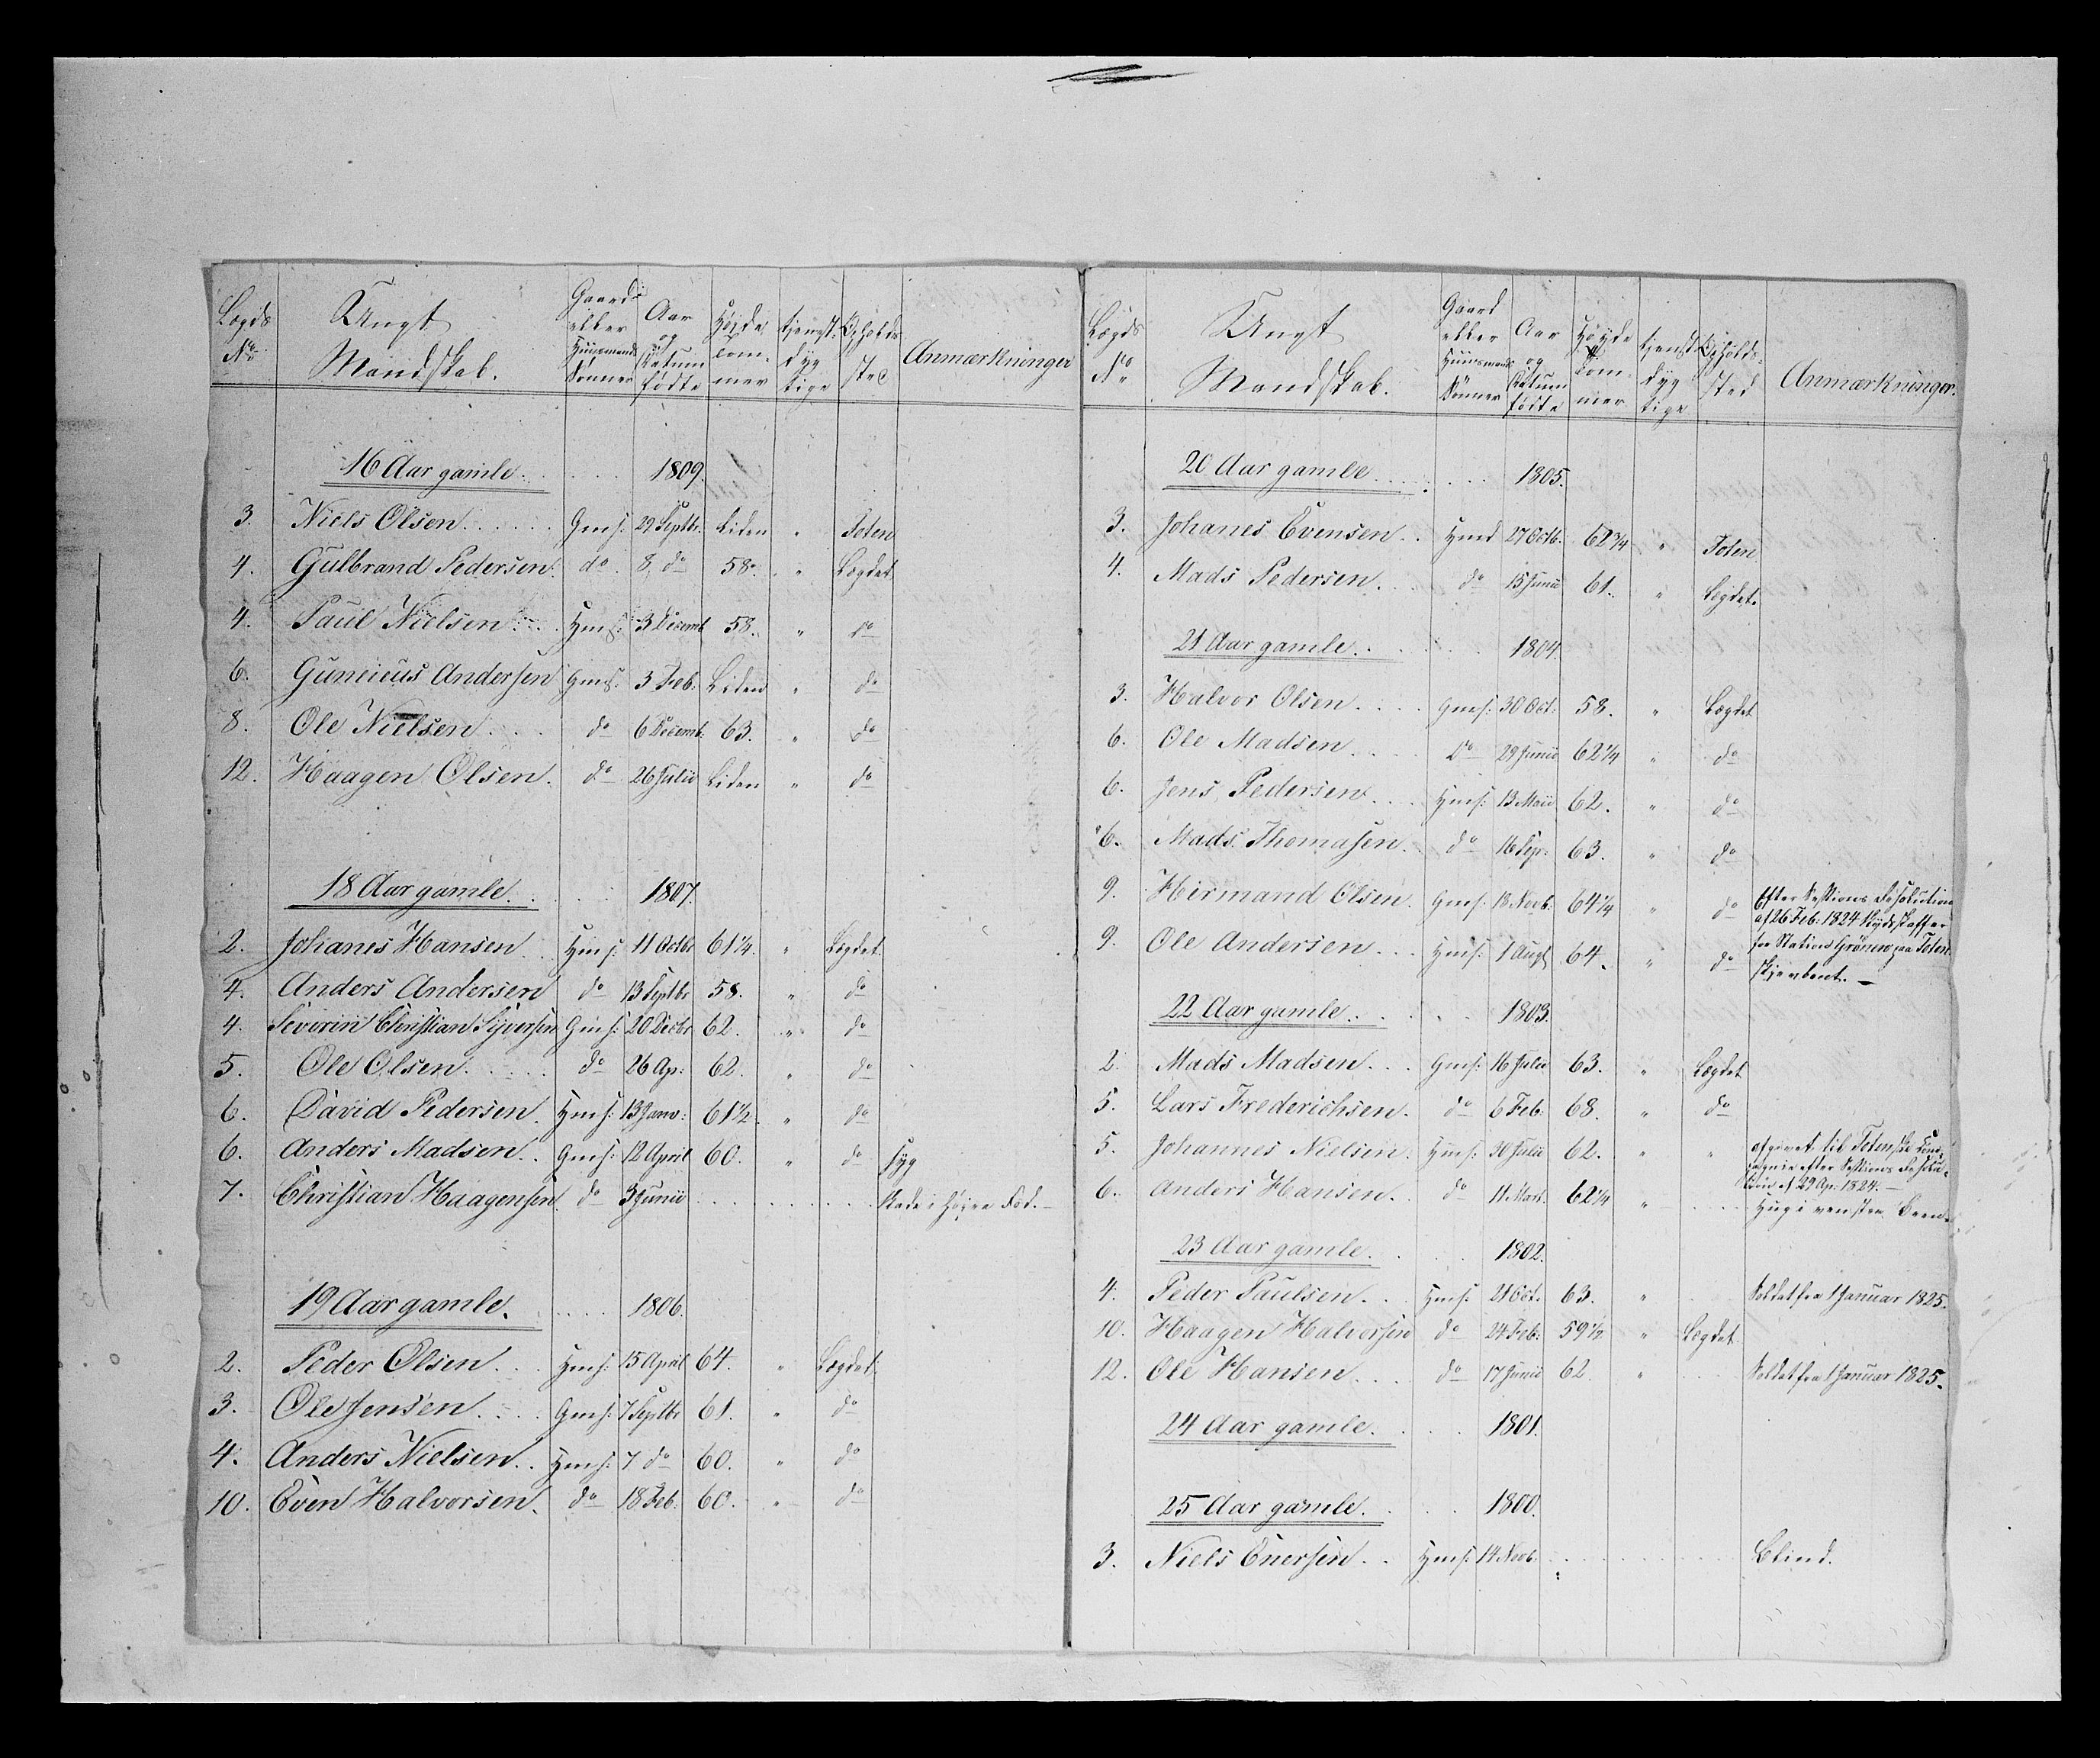 Lægds No | Ungt Mandskab. | Gaard eller Huusmands Sønner | Aar og Datum fødte | Høide Tommer | tjenstdygtige | Opholds sted | Anmærkninger
16 Aar gamle . . . . 1809.
3. Niels Olsen . . . . . Gms: 29 Septbr. Liden " Toten
4. Gulbrand Pedersen. do 8 do 58. " Lægdet
4. Paul Nielsen . . . Hms: 3 Decemb 58. " do
6. Gunerius Andersen Gms: 3 Feb: Liden " do
8. Ole Nielsen . . . do 6 Decemb. 63. " do
12. Haagen Olsen. do 26 Julii Liden " do
18 Aar gamle. . . . 1807.
2. Johanes Hansen . . Hms: 11 Octbr 61 1/4. " Lægdet.
4. Anders Andersen do 13 Septbr 58. " do
4. Severin Christian Syversen Gms: 20 Decbr 62. " do
5. Ole Olsen . . . . . do 26 Ap: 62. " do
6. David Pedersen. Hms: 13 Janv: 61 1/2. " do
6. Anders Madsen . . Gms: 12 April 60. " do Syg
7. Christian Haagensen do 3 Junii . . . . . . . . Skade i høyre Fod. —
19 Aar gamle. . . . . 1806.
2. Peder Olsen . . . Hms: 15 April 64. " Lægdet.
3. Ole Jensen . . . . Gms: 7 Septbr 61. " do
4. Anders Nielsen . . Hms: 7 do 60. " do
10. Even Halvorsen. do 18 Feb: 60. " do
Lægds No | Ungt Mandskab. | Gaard eller Huusmands Sønner | Aar og Datum fødte | Høyde Tommer | tjenstdygtige | Opholds-sted | Anmærkninger.
20 Aar gamle . . . . . . . 1805.
3. Johanes Evensen . . Hmd 27 Octb. 62 3/4 " Toten
4. Mads Pedersen . . . do 15 Junii 61. " Lægdet.
21 Aar gamle. . . . . . 1804.
3. Halvor Olsen . . . . Gms: 30 Oct: 58. " Lægdet
6. Ole Madsen . . . . do 29 Junii 62 1/4 " do
6. Jens Pedersen . . . Hms: 13 Maii 62. " do
6. Mads Thomasen. . do 16 Sep: 63. " do
9. Hirmand Olsen. Gms: 18 Novb. 64 1/4 " do Efter Sessions Resolution
af 26 Feb: 1824 Skydsskaffer
for Station Grönen paa Toten.
9. Ole Andersen . . . Hms: 1 Augt 64. " do Skjevbent. —
22 Aar gamle. . . . . . 1803.
2. Mads Madsen . . . Gms: 16 Julii 63. " Lægdet
5. Lars Frederichsen. do 6 Feb: 68. " do
5. Johannes Nielsen. Hms: 30 Julii 62. " " afgivet til Totenske Com-
pagnie efter Sessions Resolu-
tion af 29 Ap: 1824. —
6. Anders Hansen. . do 11 Mart. 62 1/4 " . . . . Hug i venstre Been.
23 Aar gamle. . . . 1802.
4. Peder Paulsen. . Hms: 21 Oct: 63. " . . Soldat fra 1 Januar 1825.
10. Haagen Halvorsen do 24 Feb: 59 1/2 " Lægdet.
12. Ole Hansen . . . . do 17 Junii 62 " . . . Soldat fra 1 Januar 1825.
24 Aar gamle. . . . 1801.
25 Aar gamle. . . . 1800.
3. Niels Enersen . . Hms: 14 Novb. . . . . . . . . . . Blind.